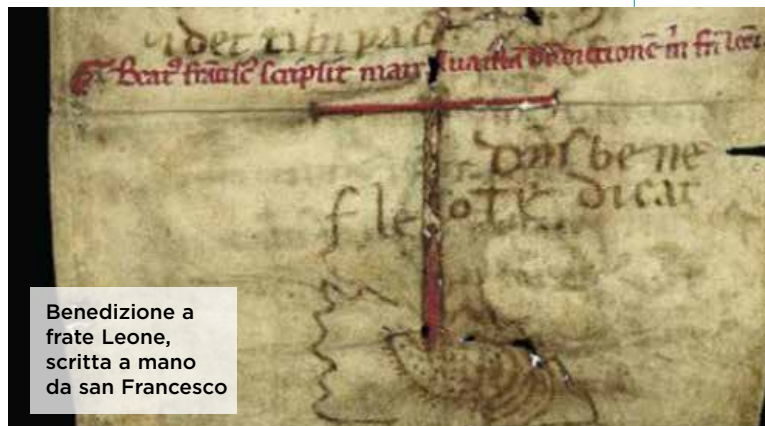 det tibi pace
Beat⁹ franſc⁹ ſcripſit man ſua iſtā bn̄dictionē m̄ fr̄i leōi
dn̄s bene
f leo te dicat
Benedizione a
frate Leone,
scritta a mano
da san Francesco